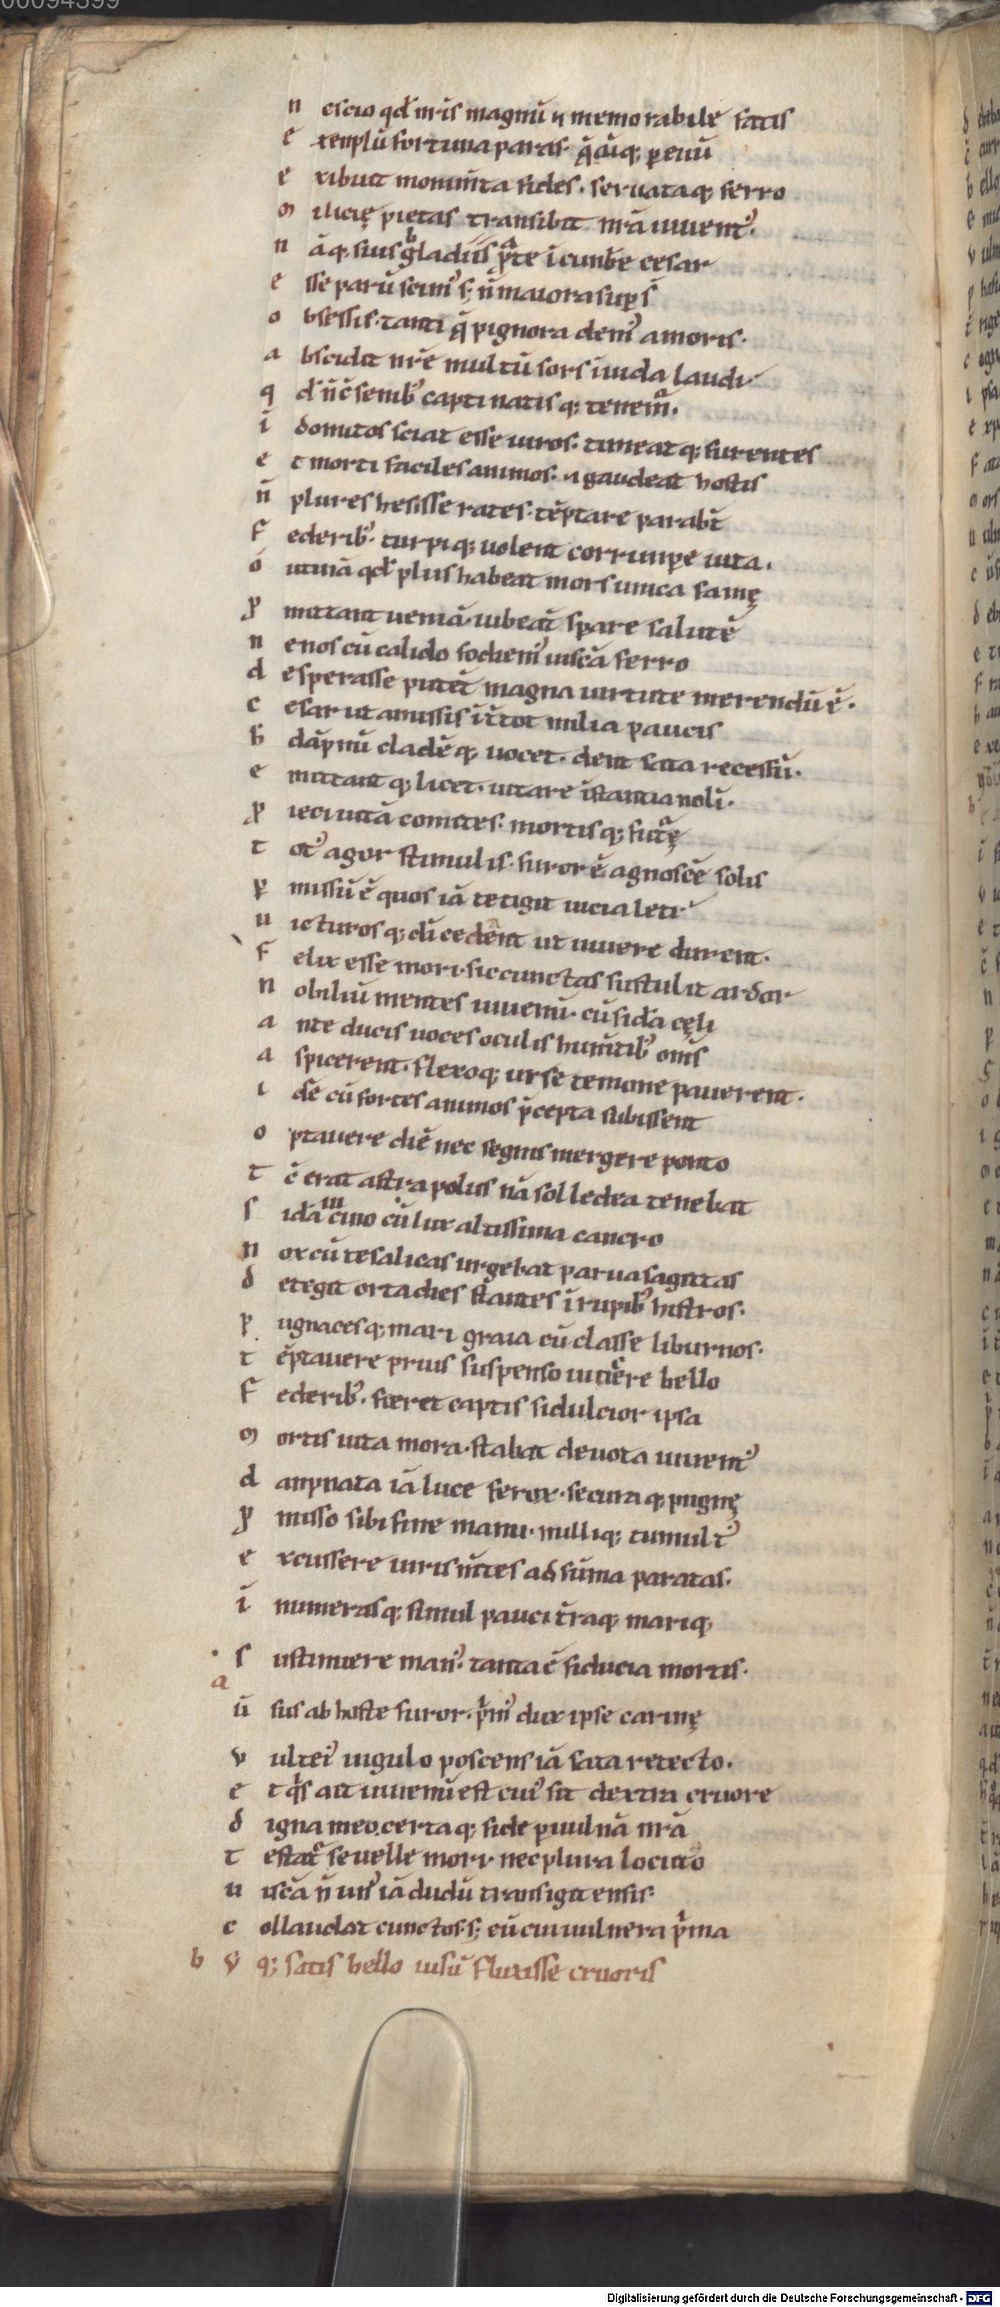 00094399
n escio qđ nr̄is magnū ⁊ memorabile fatis
e xemplū fortuna paras. q̄cūq; ꝑ euū
e xibuit monim̄ta fides. seruataq; ferro
m ilicię pietas transibit nr̄a iuuent᷒.
n āq; suis gladiis ꝓ te īcunb̄e cesar
e sse parū scim᷒ s; n̄ maiora suꝑs̄
o bsessis. tanti q̄ pignora dem᷒ amoris.
a bscidit nr̄e multū sors īuida laudi.
q đ n̄c̄ senib᷒ capti natisq; tenem̄.
ī domitos sciat esse uiros. timeatq; furentes
e t morti faciles animos. ⁊ gaudeat hostis
n̄ plures hesisse rates. tēptare parab̄t
f ederib᷒. turpiq; uolent corrunꝑe uita.
ó utinā qđ plus habeat mors unica famę
ꝓ mittant ueniā. iubeāt sꝑare salutē
n e nos cū calido fodiem᷒ uisc̄a ferro
d esperasse putēt magna uirtute merendū ē.
c esar ut amissis īt̄ tot milia paucis
h̄ dāpnū cladēq; uocet. dent fata recessū.
e mittantq; licet. uitare īstantia noli.
ꝓ ieci uitā comites. mortisq; fut̄ę
t ot᷒ agor stimulis. furor ē agnosc̄e solis
ꝑ missū ē quos iā tetigit uicia leti.
u icturosq; di cedent ut uiuere durent.
f elix esse mori. sic cunctas sustulit ardor
n obiliū mentes iuuenū. cū sid̄a cęli
a nte ducis uoces oculis humn̄tib᷒ om̄s
a spicerent. flexoq; urse temone pauerent.
i dē cū fortes animos p̄cepta subissent
o ptauere diē nec segnis mergere ponto
t c̄ erat astra polus nā sol ledea tenebat
s id̄a uicino cū lux altissima cancro
n ox cū tesalicas urgebat parua sagittas
d etegit orta dies stantes ī rupib᷒ histros.
p ugnacesq; mari graia cū classe liburnos.
t ēptauere prius suspenso uinc̄ere bello
f ederib᷒. foeret captis si dulcior ipsa
m ortis uita mora. stabat deuota iuuent᷒
d anpnata iā luce ferox. securaq; pugnę
ꝓ misso sibi fine manu. nulliq; tumult᷒
e xcussere uiris m̄tes ad sūma paratas.
ī numerasq; simul pauci t̄raq; mariq;
s ustinuere man᷒. tanta ē fiducia mortis.
a
ū sus ab hoste furor. p̄m᷒ dux ipse carinę
v ultei᷒ iugulo poscens iā fata retecto.
e t q̄s ait iuuenū est cui᷒ sit dextra cruore
d igna meo. certaq; fide ꝑ uuln̄a nr̄a
t estat᷑ se uelle mori. nec plura locuto
u isc̄a n̄ un᷒ iā dudū transigit ensis.
c ollaudat cunctos. s; eū cui uulnera p̄ma
b v̄ q; satis bello uisū fluxisse cruoris
Digitalisierung gefördert durch die Deutsche Forschungsgemeinschaft - DFG